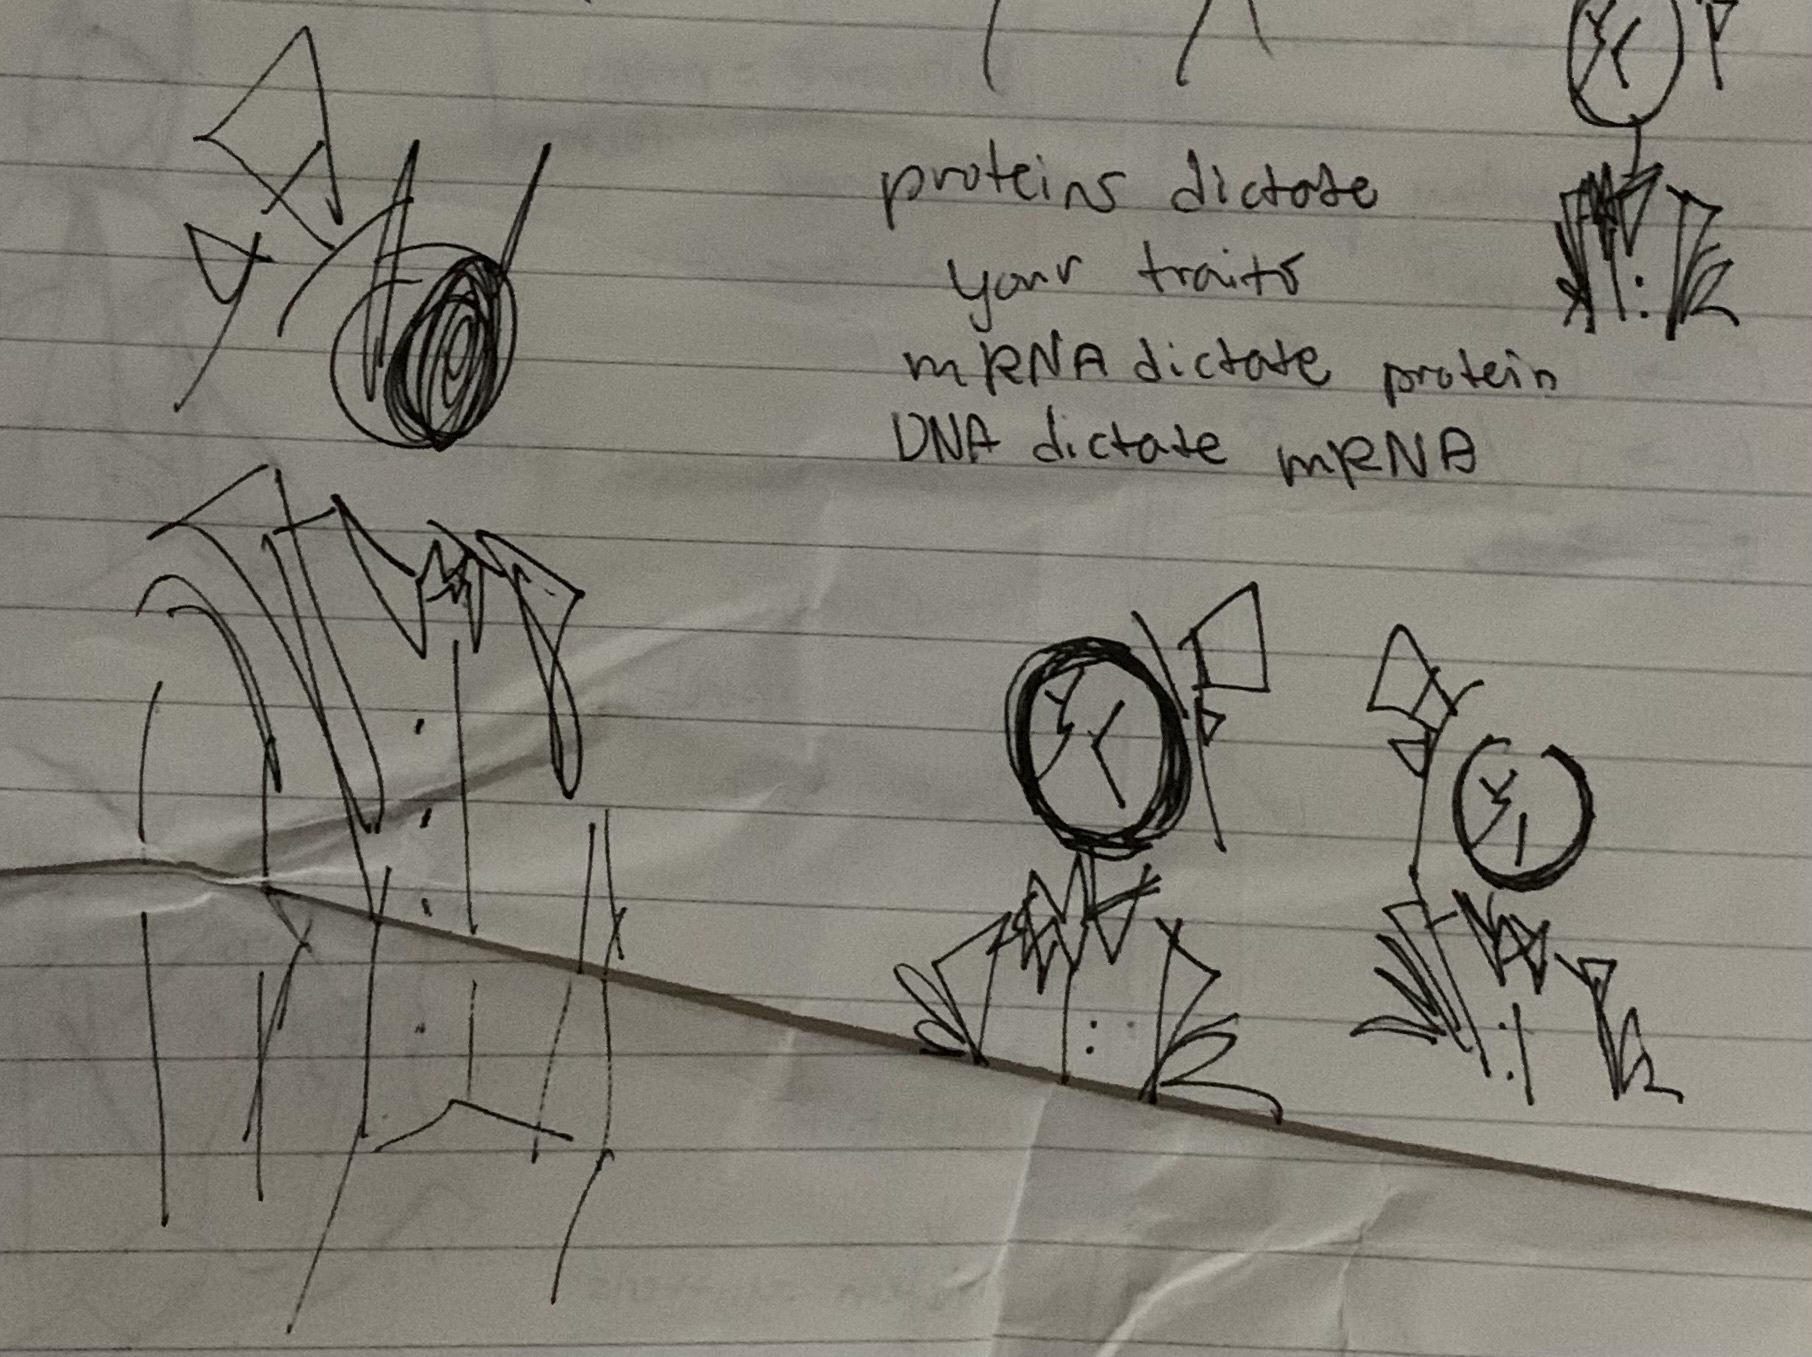 proteins dictate
your traits
mRNA dictate protein
DNA dictate mRNA